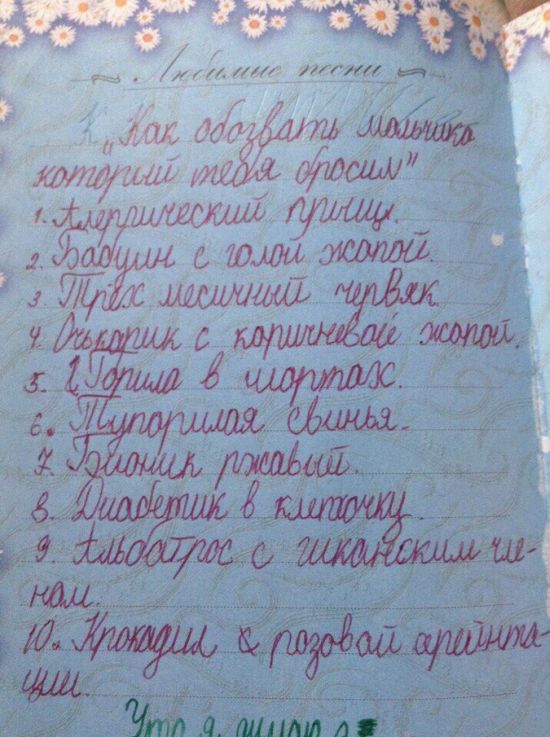 Любимые песни
„Как обозвать мальчика
который тебя бросил"
1. Алергический прыщ.
2. Бабуин с голой жопой.
3. Трёх месичный червяк
4. Очькарик с каричневой жопой.
5. Горила в шортах.
6. Тупорилая свинья.
7. Бионик ржавый.
8. Диабетик в клеточку.
9. Альбатрос с гиканским чле-
ном.
10. Крокадил с розовой орейнта-
ции.
Что я